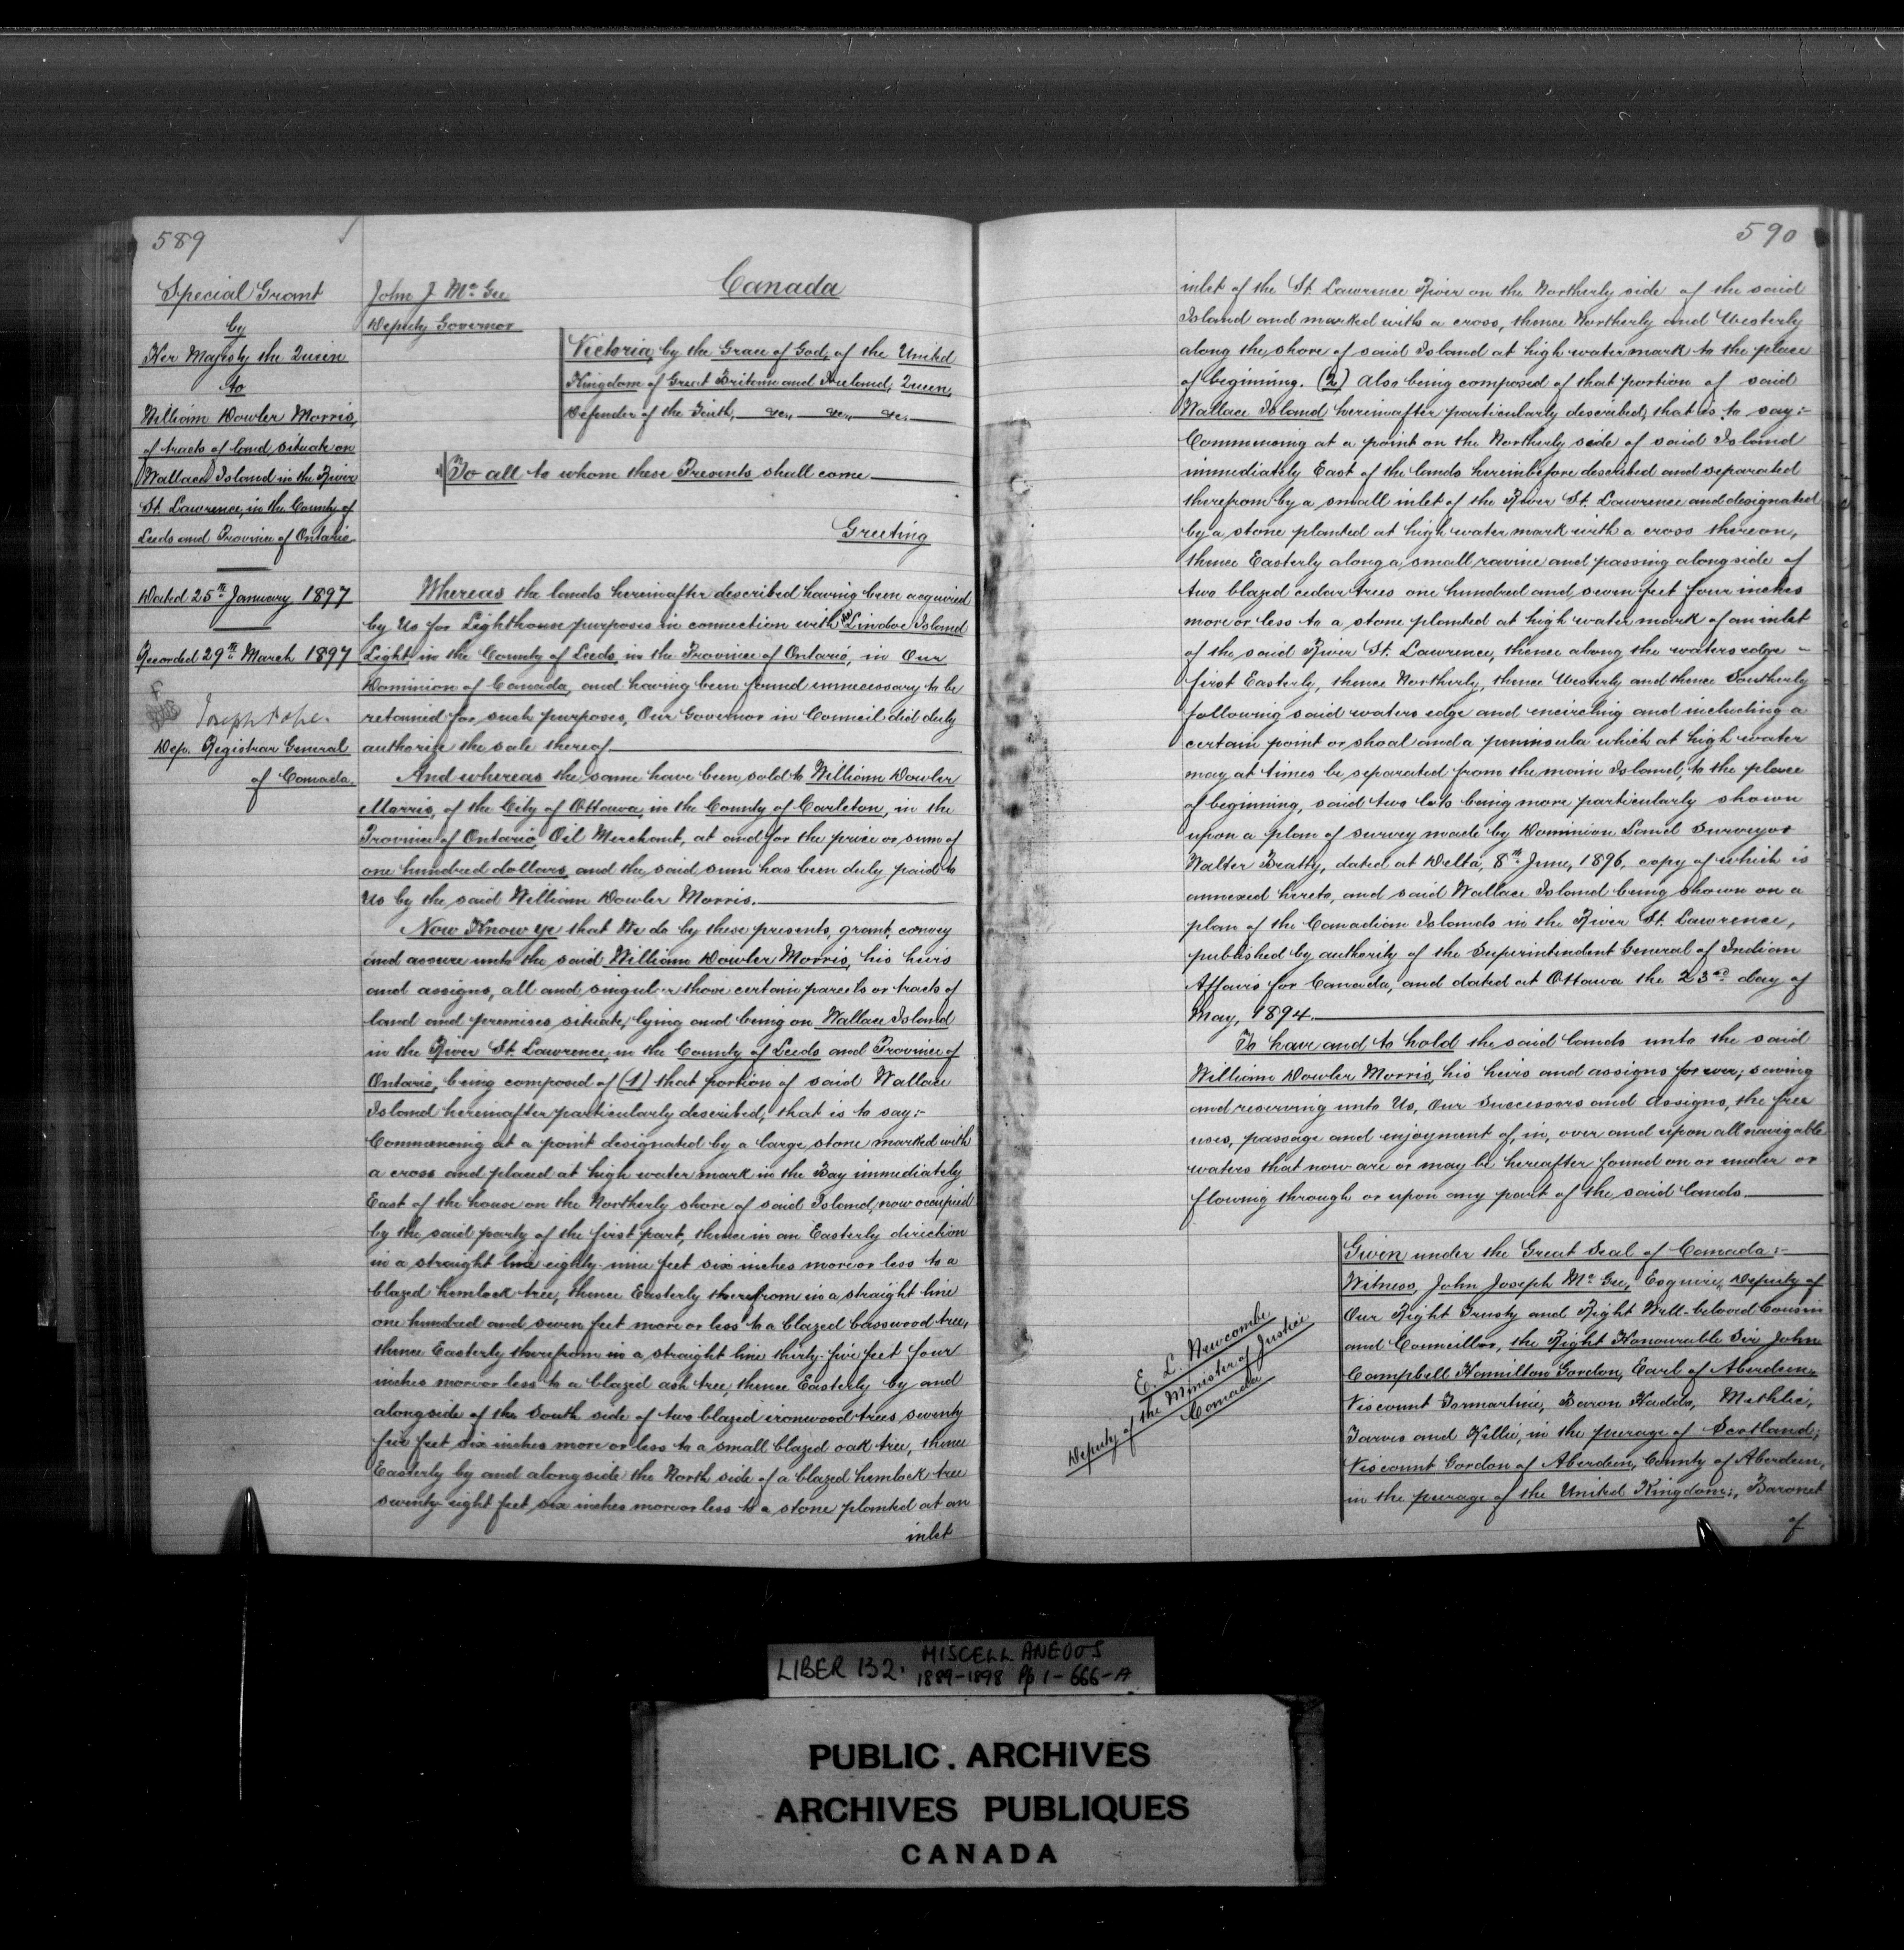 589
Special Grant
by
Her Majesty the Queen
to
William Dowler Morris,
of tracts of land situate on
Wallace Island in the River
St. Lawrence, in the County of
Leeds and Province of Ontario
Dated 25th January 1897
Recorded 29th March 1897
Joseph Pope.
Dep. Registrar General
of Canada.
John J. McGee
Deputy Governor
Canada
Victoria, by the Grace of God, of the United
Kingdom of Great Britain and Ireland, Queen,
Defender of the Faith, &c., &c., &c.
To all to whom these Presents shall come
Greeting
Whereas the lands hereinafter described having been acquired
by Us for Lighthouse purposes in connection with Lindoe Island
Light in the County of Leeds, in the Province of Ontario, in Our
Dominion of Canada, and having been found unnecessary to be
retained for such purposes, Our Governor in Council did duly
authorize the sale thereof
And whereas the same have been sold to William Dowler
Morris, of the City of Ottawa, in the County of Carleton, in the
Province of Ontario, Oil Merchant, at and for the price or sum of
one hundred dollars, and the said sum has been duly paid to
Us by the said William Dowler Morris.
Now Know ye that We do by these presents, grant, convey
and assure unto the said William Dowler Morris, his heirs
and assigns, all and singular those certain parcels or tracts of
land and premises situate, lying and being on Wallace Island
in the River St. Lawrence, in the County of Leeds and Province of
Ontario, being composed of (1) that portion of said Wallace
Island hereinafter particularly described, that is to say:-
Commencing at a point designated by a large stone marked with
a cross and placed at high water mark in the Bay immediately
East of the house on the Northerly shore of said Island, now occupied
by the said party of the first part, thence in an Easterly direction
in a straight line eighty-nine feet six inches more or less to a
blazed hemlock tree, thence Easterly therefrom in a straight line
one hundred and seven feet more or less to a blazed basswood tree,
thence Easterly therefrom in a straight line thirty-five feet four
inches more or less to a blazed ash tree, thence Easterly by and
alongside of the South side of two blazed ironwood trees seventy
five feet six inches more or less to a small blazed oak tree, thence
Easterly by and alongside the North side of a blazed hemlock tree
seventy-eight feet six inches more or less to a stone planted at an
inlet
590
inlet of the St. Lawrence River on the Northerly side of the said
Island and marked with a cross, thence Northerly and Westerly
along the shore of said Island at high water mark to the place
of beginning. (2) Also being composed of that portion of said
Wallace Island hereinafter particularly described, that is to say:-
Commencing at a point on the Northerly side of said Island
immediately East of the lands hereinbefore described and separated
therefrom by a small inlet of the River St. Lawrence and designated
by a stone planted at high water mark with a cross thereon,
thence Easterly along a small ravine and passing alongside of
two blazed cedar trees one hundred and seven feet four inches
more or less to a stone planted at high water mark of an inlet
of the said River St. Lawrence, thence along the waters edge -
first Easterly, thence Northerly, thence Westerly and thence Southerly
following said waters edge and encircling and including a
certain point or shoal and a peninsula which at high water
may at times be separated from the main Island, to the place
of beginning, said two lots being more particularly shown
upon a plan of survey made by Dominion Land Surveyor
Walter Beatty, dated at Delta, 8th June, 1896, copy of which is
annexed hereto, and said Wallace Island being shown on a
plan of the Canadian Islands in the River St. Lawrence,
published by authority of the Superintendent General of Indian
Affairs for Canada, and dated at Ottawa the 23rd day of
May, 1894.
To have and to hold the said lands unto the said
William Dowler Morris, his heirs and assigns for ever; saving
and reserving unto Us, Our Successors and Assigns, the free
uses, passage and enjoyment of, in, over and upon all navigable
waters that now are or may be hereafter found on or under or
flowing through or upon any part of the said lands.
E. L. Newcombe
Deputy of the Minister of Justice
Canada
Given under the Great Seal of Canada:-
Witness, John Joseph McGee, Esquire, Deputy of
Our Right Trusty and Right Well-beloved Cousin
and Councillor, the Right Honourable Sir John
Campbell Hamilton Gordon, Earl of Aberdeen,
Viscount Formartine, Baron Haddo, Methlic,
Tarves and Kellie, in the peerage of Scotland;
Viscount Gordon of Aberdeen, County of Aberdeen,
in the peerage of the United Kingdom; Baronet
of
LIBER 132. MISCELLANEOUS
1889-1898 Pp 1-666-A
PUBLIC. ARCHIVES
ARCHIVES PUBLIQUES
CANADA